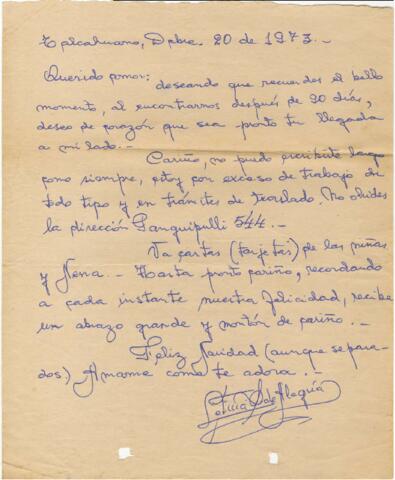 Talcahuano, Dcbre. 20 de 1973.-
Querido amor:
deseando que recuerdes el bello
momento, al encontrarnos después de 90 días,
deseo de corazón que sea pronto tu llegada
a mi lado.-
Cariño, no puedo escribirte largo
como siempre, estoy con exceso de trabajo de
todo tipo y en trámites de traslado. No olvides
la dirección Panguipulli 544.-
Va cartas (tarjetas) de las niñas
y Nena.- Hasta pronto cariño, recordando
a cada instante nuestra felicidad, recibe
un abrazo grande y montón de cariño.-
Feliz Navidad (aunque separa-
dos.) Amame como te adora.-
Leticia S de Alegría